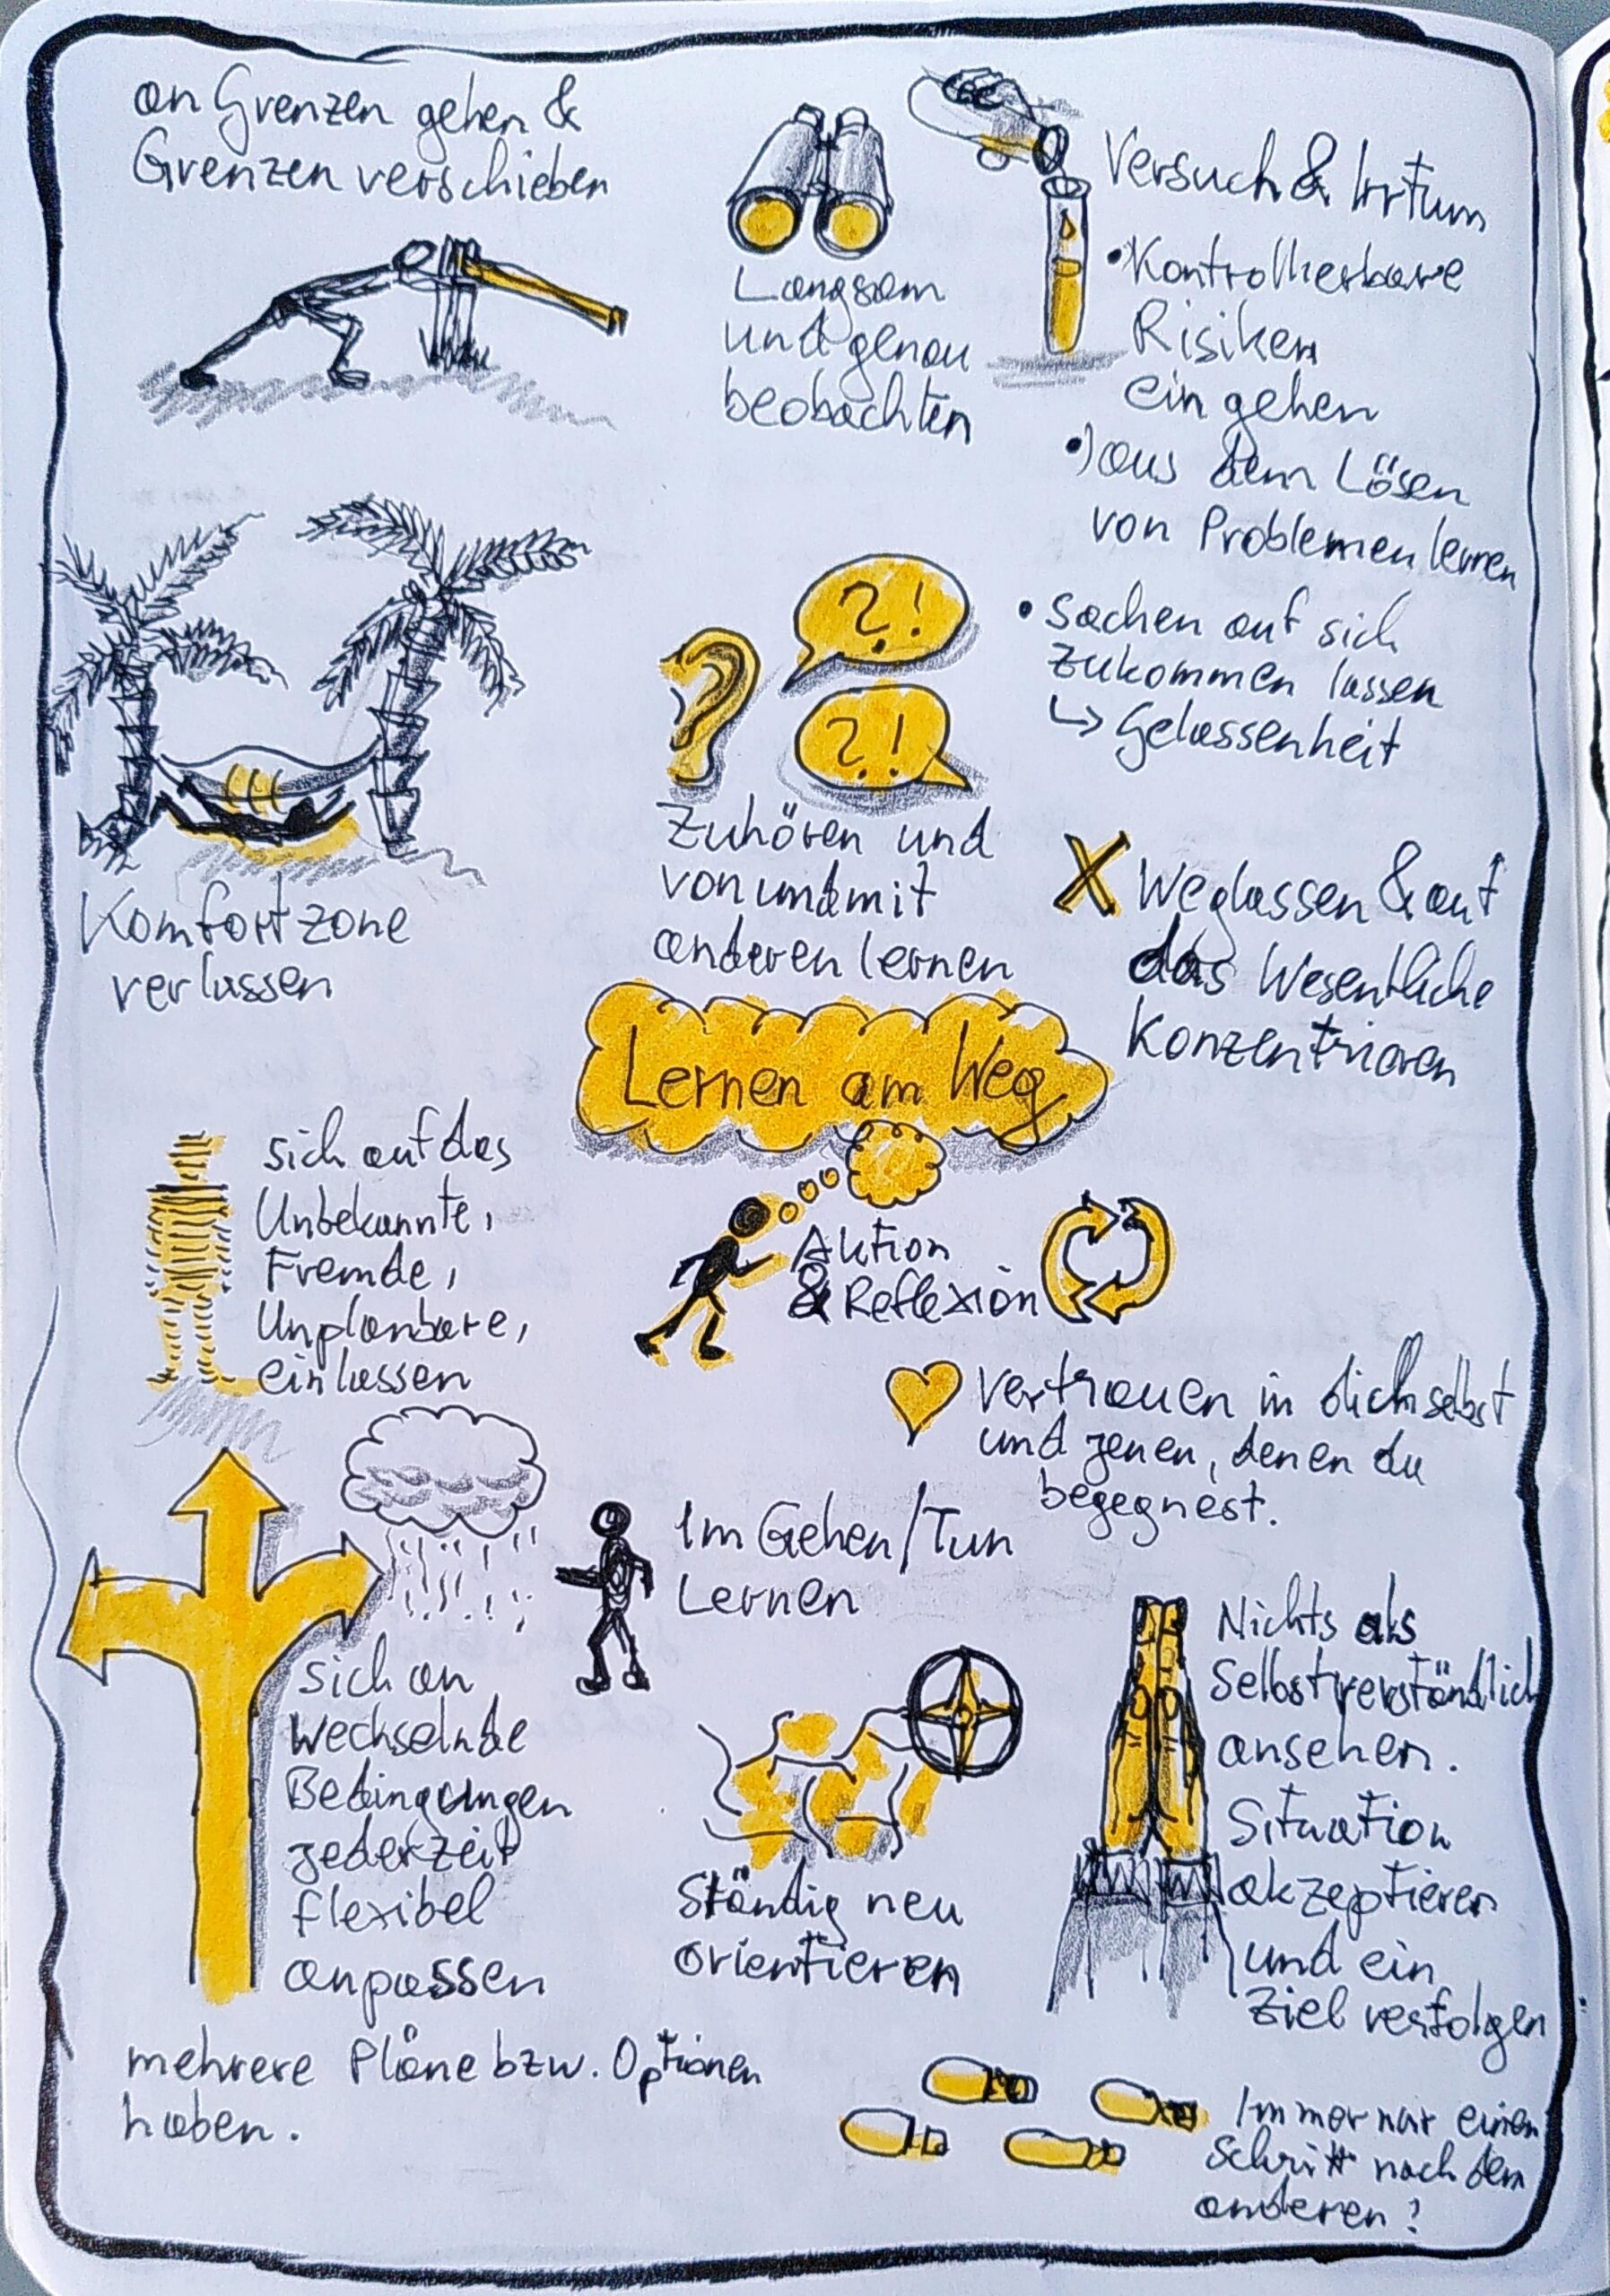 an Grenzen gehen &
Grenzen verschieben
Langsam
und genau
beobachten
Versuch & Irrtum
• Kontrollierbare
Risiken
eingehen
• aus dem Lösen
von Problemen lernen
• Sachen auf sich
zukommen lassen
↳ Gelassenheit
?!
?!
Zuhören und
von und mit
anderen lernen
Komfortzone
verlassen
X Weglassen & auf
das Wesentliche
Konzentrieren
Lernen am Weg
sich auf das
Unbekannte,
Fremde,
Unplanbare,
einlassen
Aktion
& Reflexion
Vertrauen in dich selbst
und jenen, denen du
begegnest.
Im Gehen/Tun
Lernen
sich an
wechselnde
Bedingungen
jederzeit
flexibel
anpassen
Ständig neu
orientieren
Nichts als
Selbstverständlich
ansehen.
Situation
akzeptieren
und ein
Ziel verfolgen
mehrere Pläne bzw. Optionen
haben.
Immer nur einen
Schritt nach dem
anderen!